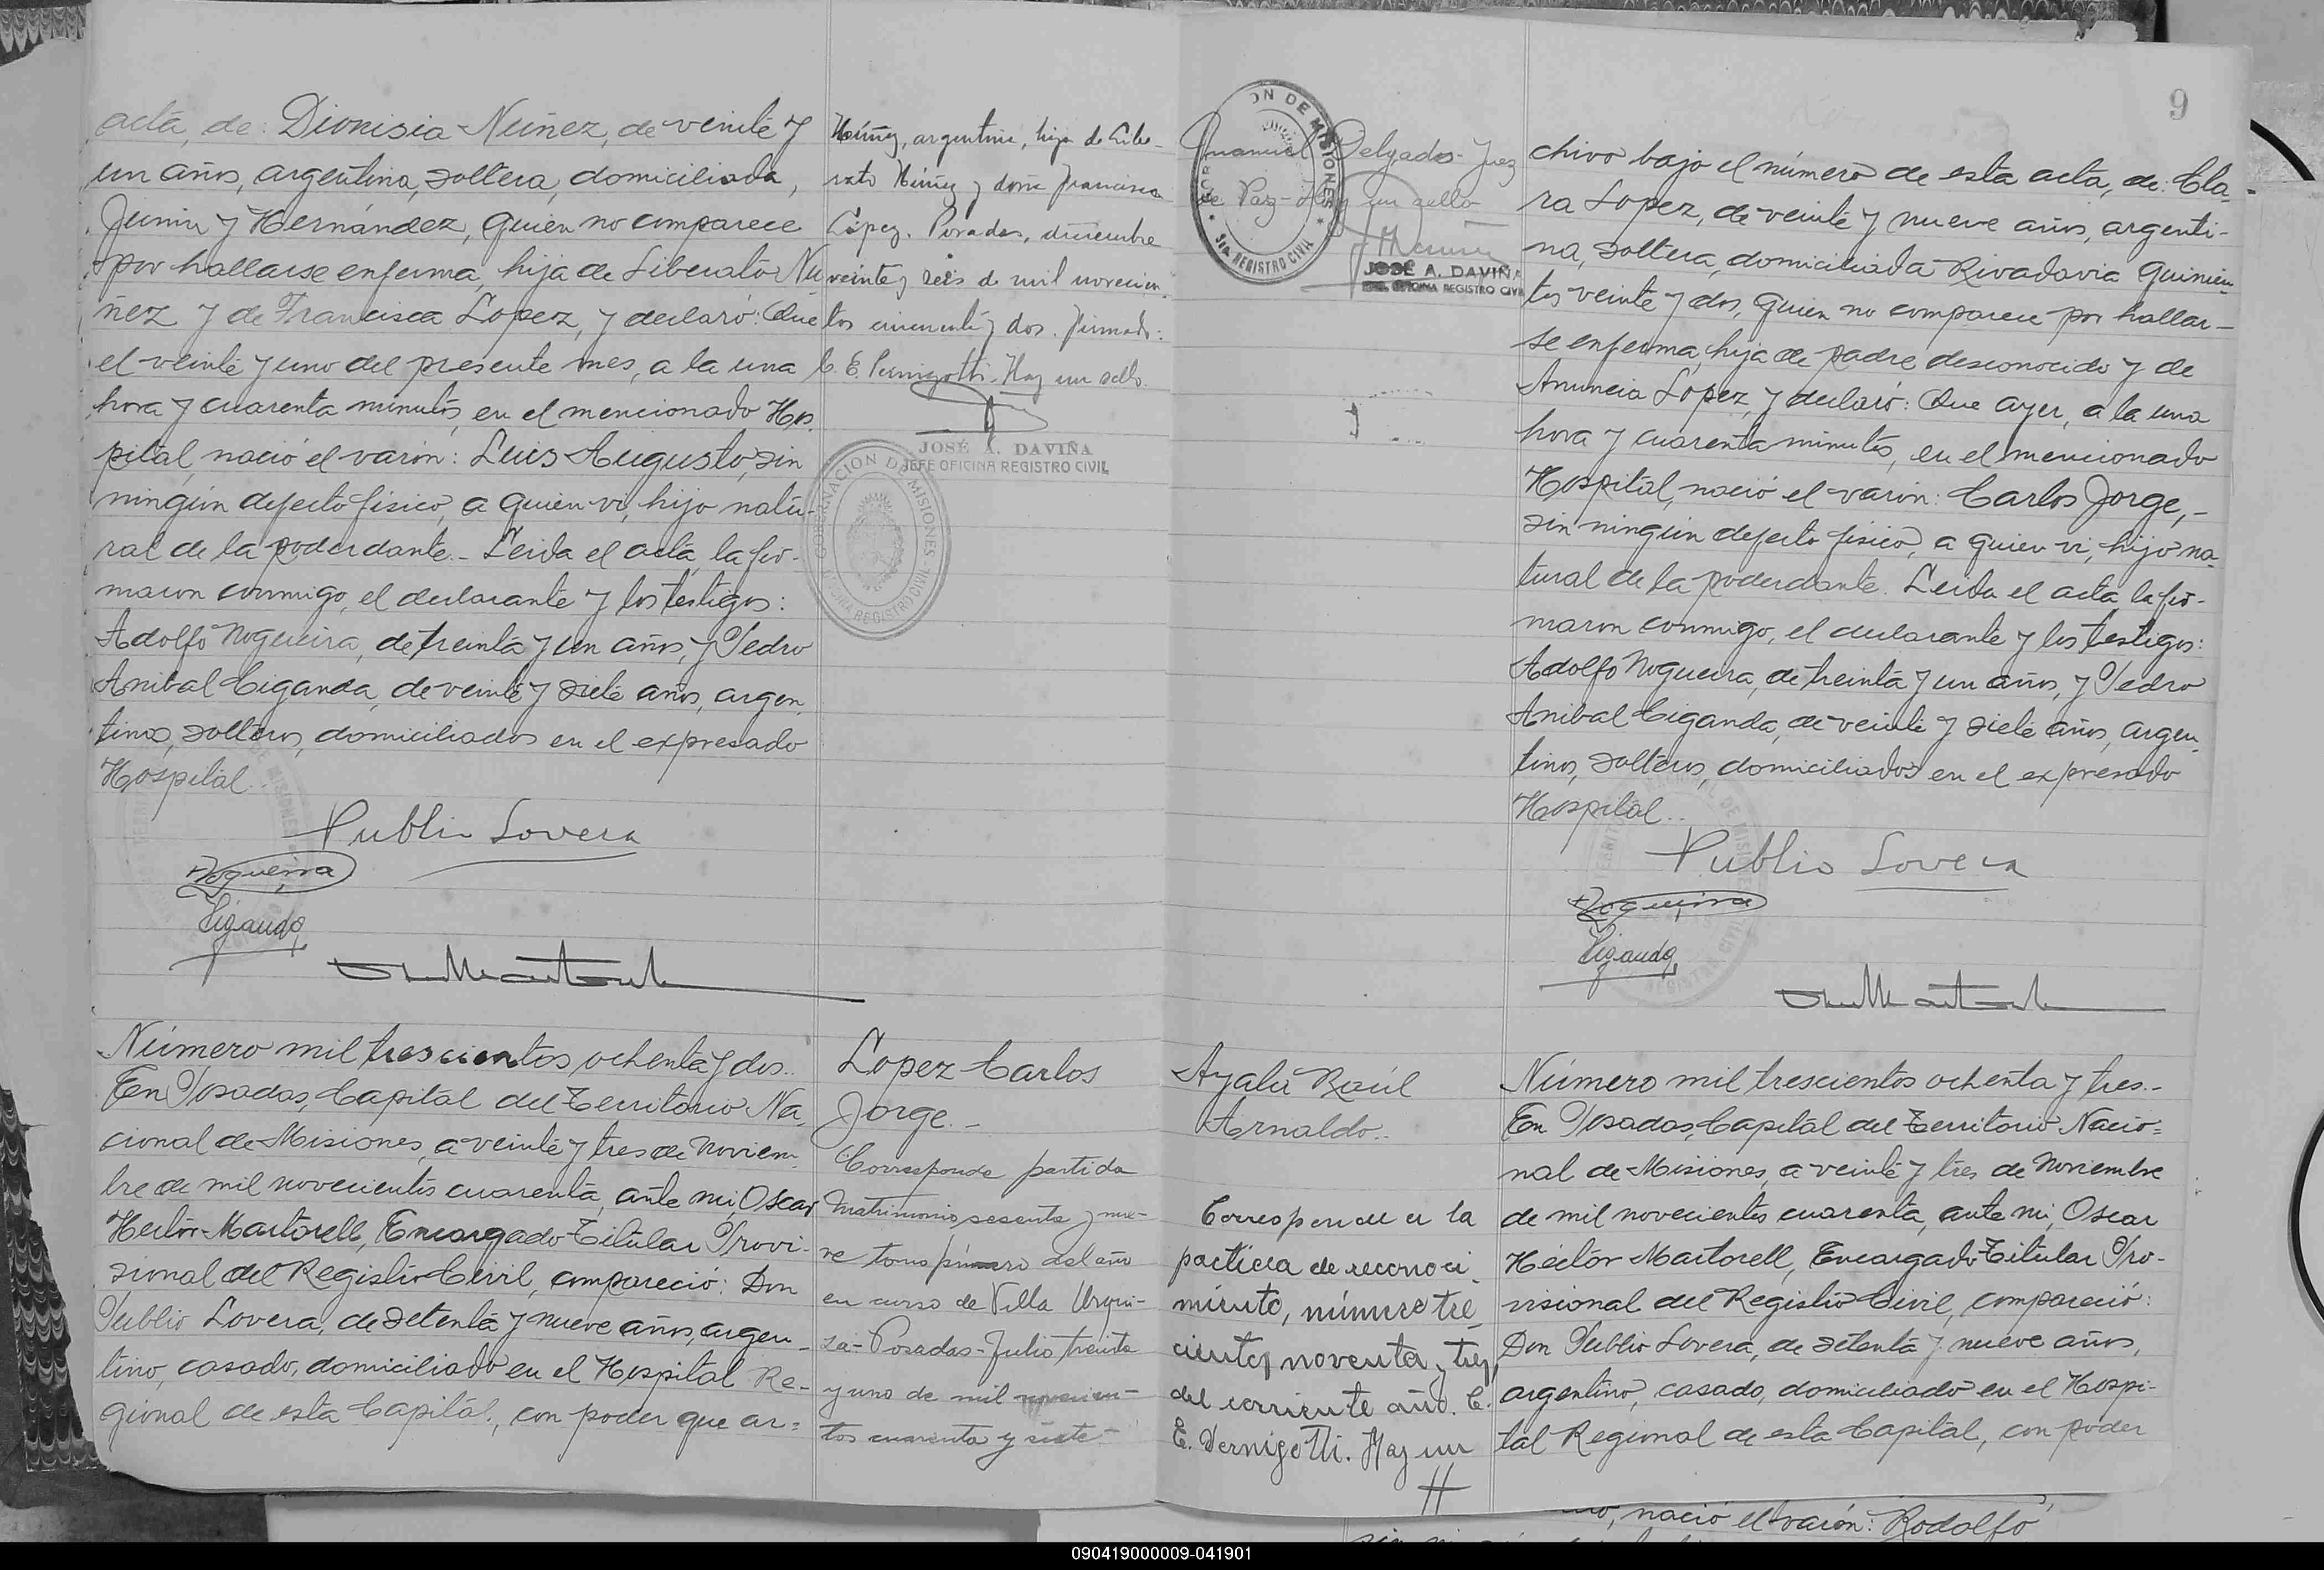 acta, de: Dionisia Nuñez, de veinte y
un años, argentina, soltera, domiciliada,
Junin y Hernández, quien no comparece
por hallarse enferma, hija de Liberato Nu
ñez y de Francisca Lopez, y declaró: Que
el veinte y uno del presente mes, a la una
hora y cuarenta minutos, en el mencionado Hos
pital, nació el varón: Luis Augusto, sin
ningún defecto físico, a quien vi, hijo natu-
ral de la poderdante.- Leida el acta, la fir-
maron conmigo, el declarante y los testigos:
Adolfo Nogueira, de treinta y un años, y Pedro
Anibal Ciganda, de veinte y siete años, argen
tinos, solteros, domiciliados en el expresado
Hospital.
Publio Lovera
Nogueira
Ciganda
Núñez, argentina, hija de Libe-
rato Núñez y doña Francisca
López. Posadas, diciembre
veinte y seis de mil novecien-
tos cincuenta y dos. Firmado:
C. E. Pernigotti. Hay un sello.
JOSÉ A. DAVIÑA
JEFE OFICINA REGISTRO CIVIL
GOBERNACION DE MISIONES
OFICINA REGISTRO CIVIL
Número mil trescientos ochenta y dos..
En Posadas, Capital del Territorio Na
cional de Misiones, a veinte y tres de Noviem
bre de mil novecientos cuarenta, ante mi, Oscar
Hector Martorell, Encargado Titular Provi-
sional del Registro Civil, compareció: Don
Publio Lovera, de setenta y nueve años, argen-
tino, casado, domiciliado en el Hospital Re-
gional de esta Capital, con poder que ar=
Lopez Carlos
Jorge.-
Corresponde partida
Matrimonio sesenta y nue-
ve tomo primero del año
en curso de Villa Urqui-
za- Posadas- Julio treinta
y uno de mil novecien-
tos cuarenta y siete-
9
Manuel Delgado- Juez
de Paz- Hay un sello
JOSÉ A. DAVIÑA
JEFE OFICINA REGISTRO CIVIL
chivo bajo el número de esta acta, de: Cla-
ra Lopez, de veinte y nueve años, argenti-
na, soltera, domiciliada Rivadavia Quinien
tos veinte y dos, quien no comparece por hallar-
se enferma, hija de padre desconocido y de
Anuncia Lopez, y declaró: Que ayer, a la una
hora y cuarenta minutos, en el mencionado
Hospital, nació el varón: Carlos Jorge,-
sin ningún defecto físico, a quien vi, hijo na-
tural de la poderdante. Leida el acta, la fir-
maron conmigo, el declarante y los testigos:
Adolfo Nogueira, de treinta y un años, y Pedro
Anibal Ciganda, de veinte y siete años, argen
tinos, solteros, domiciliados en el expresado
Hospital..
Publio Lovera
Nogueira
Ciganda
Ayala Raúl
Arnaldo..
Corresponde a la
partida de reconoci
miento, número tre
cientos noventa y tres
del corriente año. C.
E. Pernigotti. Hay un
Número mil trescientos ochenta y tres.-
En Posadas, Capital del Territorio Nacio=
nal de Misiones, a veinte y tres de Noviembre
de mil novecientos cuarenta, ante mi, Oscar
Héctor Martorell, Encargado Titular Pro-
visional del Registro Civil, compareció:
Don Publio Lovera, de setenta y nueve años,
argentino, casado, domiciliado en el Hospi-
tal Regional de esta Capital, con poder
nació el varón: Rodolfo
090419000009-041901